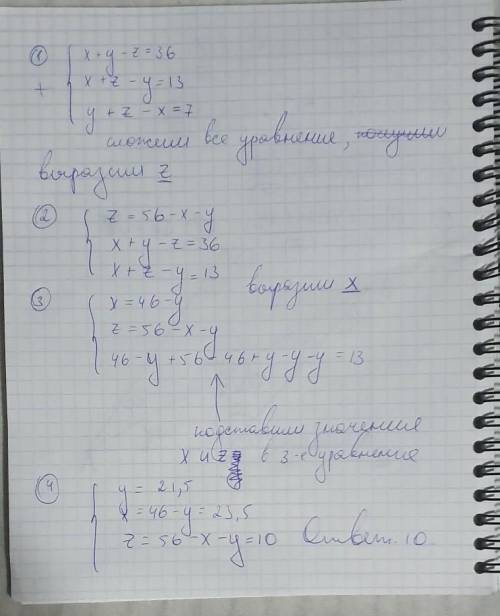 ① x+y-z=36
+ x+z-y=13
y+z-x=7
сложим все уравнение, получим
выразим z
② z=56-x-y
x+y-z=36
x+z-y=13
выразим x
③ x=46-y
z=56-x-y
46-y+56-46+y-y-y=13
подставили значение
x и z в 3-е уравнение
④ y=21,5
x=46-y=23,5
z=56-x-y=10 Ответ. 10